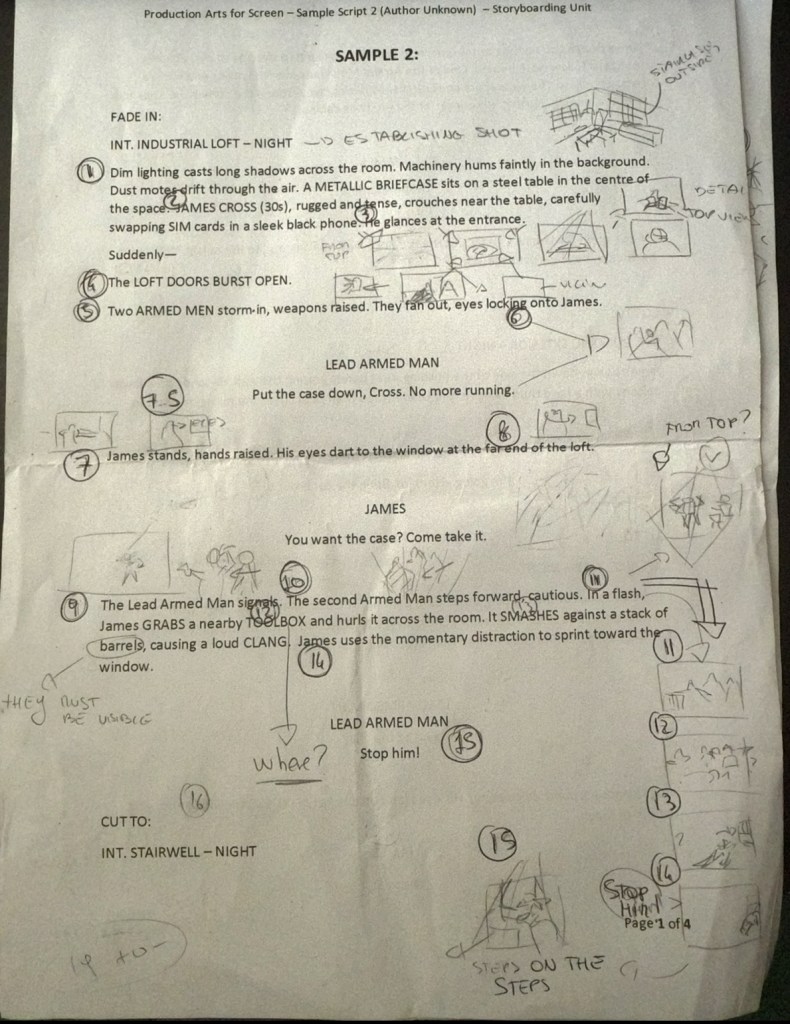 Production Arts for Screen – Sample Script 2 (Author Unknown) – Storyboarding Unit
SAMPLE 2:
OUTSIDE
FADE IN:
INT. INDUSTRIAL LOFT – NIGHT ESTABLISHING SHOT
1 Dim lighting casts long shadows across the room. Machinery hums faintly in the background.
Dust motes drift through the air. A METALLIC BRIEFCASE sits on a steel table in the centre of
2
the space. JAMES CROSS (30s), rugged and tense, crouches near the table, carefully
DETAIL
TOP VIEW
3
swapping SIM cards in a sleek black phone. He glances at the entrance.
FROM
Suddenly—
4 The LOFT DOORS BURST OPEN.
5 Two ARMED MEN storm in, weapons raised. They fan out, eyes locking onto James.
6
LEAD ARMED MAN
7.5
Put the case down, Cross. No more running.
8
FROM TOP?
7 James stands, hands raised. His eyes dart to the window at the far end of the loft.
JAMES
You want the case? Come take it.
10
9 The Lead Armed Man signals. The second Armed Man steps forward, cautious. In a flash,
12 13
James GRABS a nearby TOOLBOX and hurls it across the room. It SMASHES against a stack of
barrels, causing a loud CLANG. James uses the momentary distraction to sprint toward the
11
window.
14
THEY MUST
BE VISIBLE
LEAD ARMED MAN
12
Stop him! 15
where?
16
13
CUT TO:
15
INT. STAIRWELL – NIGHT
14
STOP
HIM!
Page 1 of 4
STEPS ON THE
STEPS